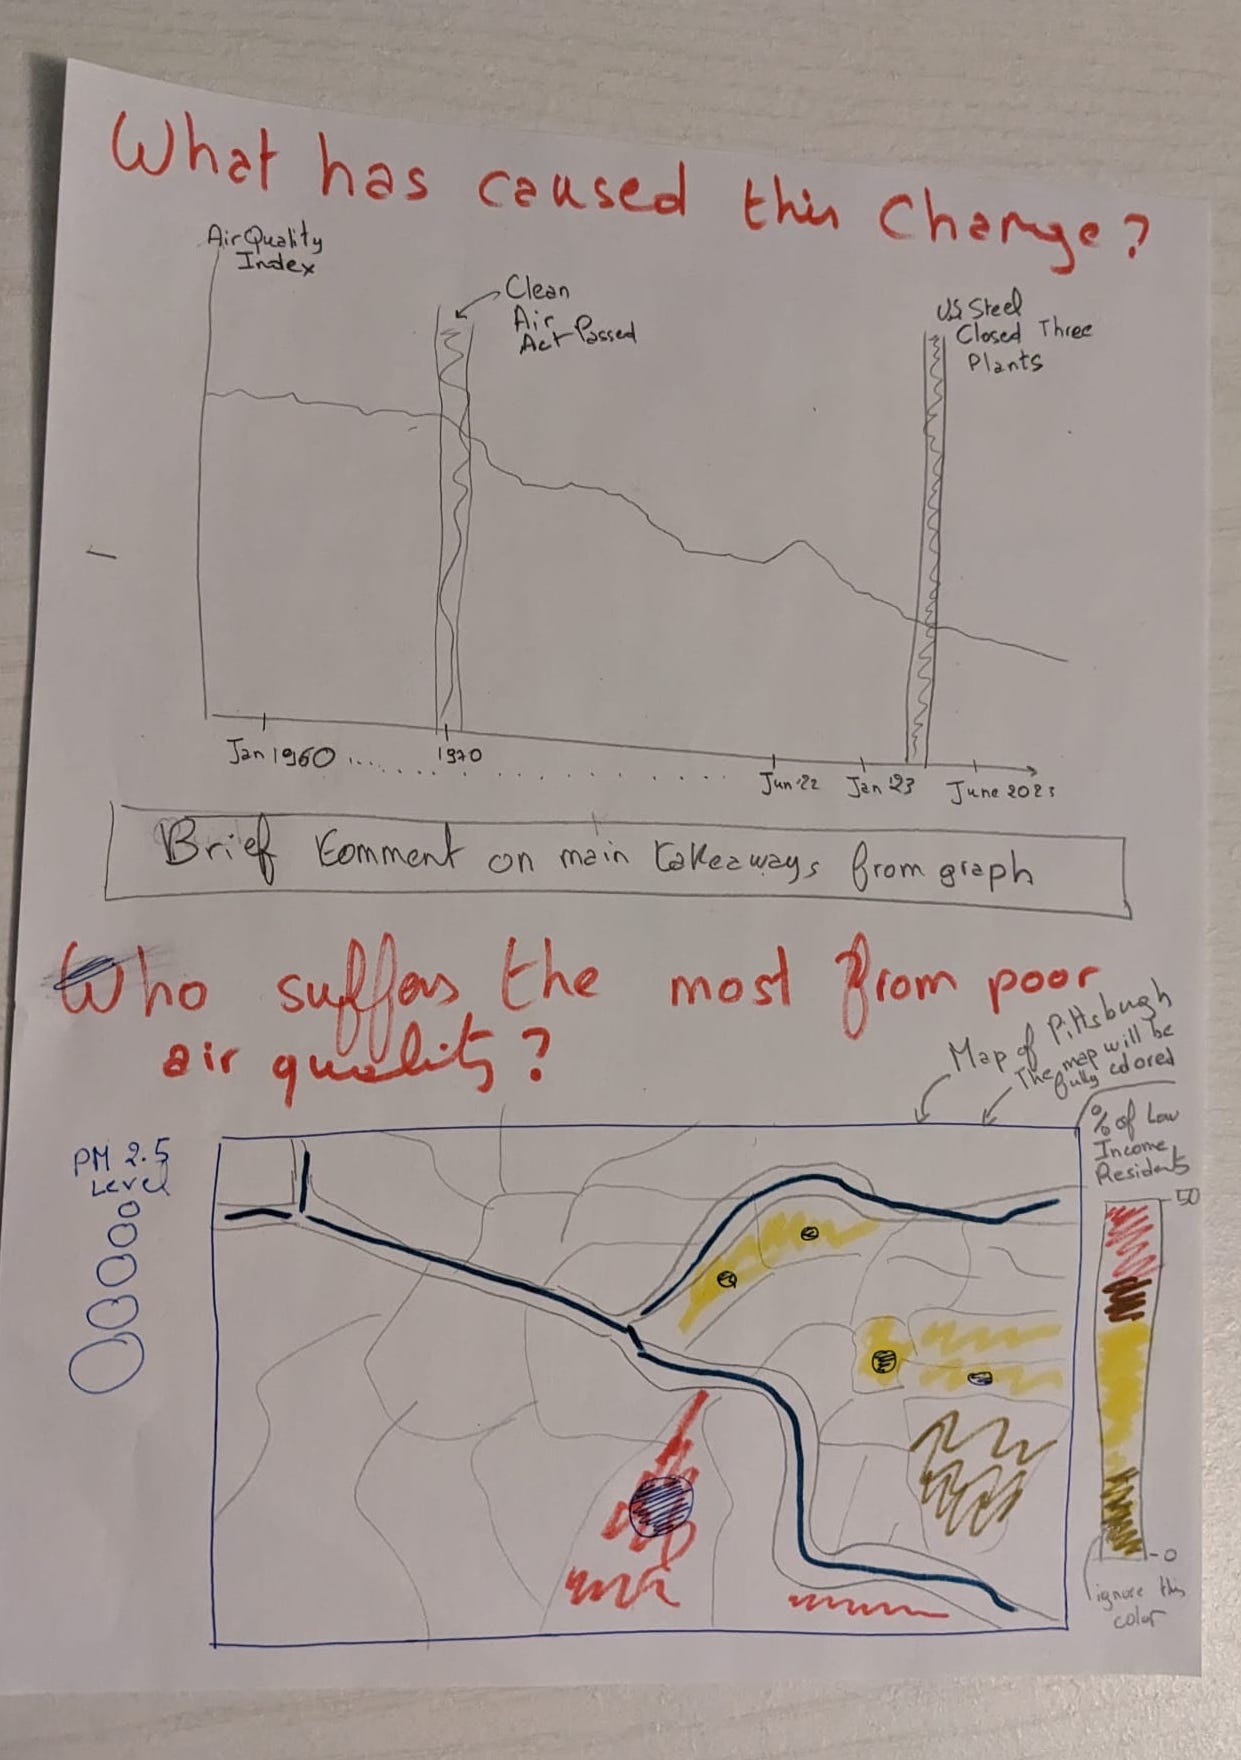 What has caused this Change?
Air Quality
Index
Clean
Air
Act Passed
US Steel
Closed Three
Plants
Jan 1960 ...... 1970 ........ Jun '22 Jan '23 June 2023
Brief Comment on main takeaways from graph
Who suffers the most from poor
air quality?
Map of Pittsburgh
The map will be
fully colored
PM 2.5
Level
% of Low
Income
Residents
50
0
ignore this
color